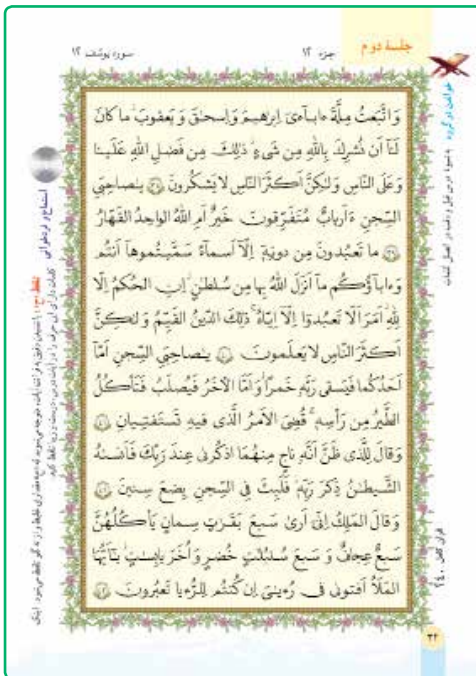 جلسهٔ دوم
جزء ۱۲
سوره یوسف ۱۲
وَاتَّبَعتُ مِلَّةَ ءابآءي اِبرهيمَ وَاِسحٰقَ وَيَعقوبَ ما كانَ
لَنآ اَن نُشرِكَ بِاللهِ مِن شَيءٍ ذٰلِكَ مِن فَضلِ اللهِ عَلَينا
وَعَلَى النّاسِ وَلٰكِنَّ اَكثَرَ النّاسِ لا يَشكُرونَ ۳۸ يٰصاحِبَيِ
السِّجنِ ءَاَربابٌ مُتَفَرِّقونَ خَيرٌ اَمِ اللهُ الواحِدُ القَهّارُ
۳۹ ما تَعبُدونَ مِن دونِهٖ اِلّآ اَسمآءً سَمَّيتُموهآ اَنتُم
وَءابآؤُكُم مآ اَنزَلَ اللهُ بِها مِن سُلطٰنٍ اِنِ الحُكمُ اِلّا
لِلّٰهِ اَمَرَ اَلّا تَعبُدوٓا اِلّآ اِيّاهُ ذٰلِكَ الدّينُ القَيِّمُ وَلٰكِنَّ
اَكثَرَ النّاسِ لا يَعلَمونَ ۴۰ يٰصاحِبَيِ السِّجنِ اَمّآ
اَحَدُكُما فَيَسقي رَبَّهٗ خَمرًا وَاَمَّا الآخَرُ فَيُصلَبُ فَتَأكُلُ
الطَّيرُ مِن رَأسِهٖ قُضِيَ الاَمرُ الَّذي فيهِ تَستَفتِيانِ ۴۱
وَقالَ لِلَّذي ظَنَّ اَنَّهٗ ناجٍ مِنهُمَا اذكُرني عِندَ رَبِّكَ فَاَنسٰهُ
الشَّيطٰنُ ذِكرَ رَبِّهٖ فَلَبِثَ فِي السِّجنِ بِضعَ سِنينَ ۴۲
وَقالَ المَلِكُ اِنّي اَرىٰ سَبعَ بَقَرٰتٍ سِمانٍ يَأكُلُهُنَّ
سَبعٌ عِجافٌ وَ سَبعَ سُنبُلٰتٍ خُضرٍ وَاُخَرَ يابِسٰتٍ يٰٓاَيُّهَا
المَلَاُ اَفتوني في رُءيٰيَ اِن كُنتُم لِلرُّءيا تَعبُرونَ ۴۳
خواندن دو گروه
استماع و فردخوانی
قرآن کامل ۲۴۰
۳۲